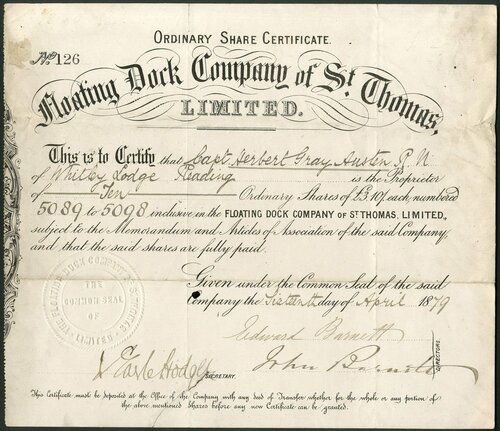 ORDINARY SHARE CERTIFICATE.
No. 126
Floating Dock Company of St. Thomas,
LIMITED.
This is to Certify that Capt. Herbert Gray Austen R.N
of Whitley Lodge Reading is the Proprietor
of Ten Ordinary Shares of £3.10/ each, numbered
5089 to 5098 inclusive in the FLOATING DOCK COMPANY OF ST THOMAS, LIMITED,
subject to the Memorandum and Articles of Association of the said Company
and that the said shares are fully paid.
Given under the Common Seal of the said
Company the Sixteenth day of April 1879
THE FLOATING DOCK COMPANY OF ST THOMAS LIMITED
THE
COMMON SEAL
OF
Edward Barnett
John
DIRECTORS.
Earle Hodges
SECRETARY.
This Certificate must be deposited at the Office of the Company with any deed of Transfer whether for the whole or any portion of
the above mentioned Shares before any new Certificate can be granted.